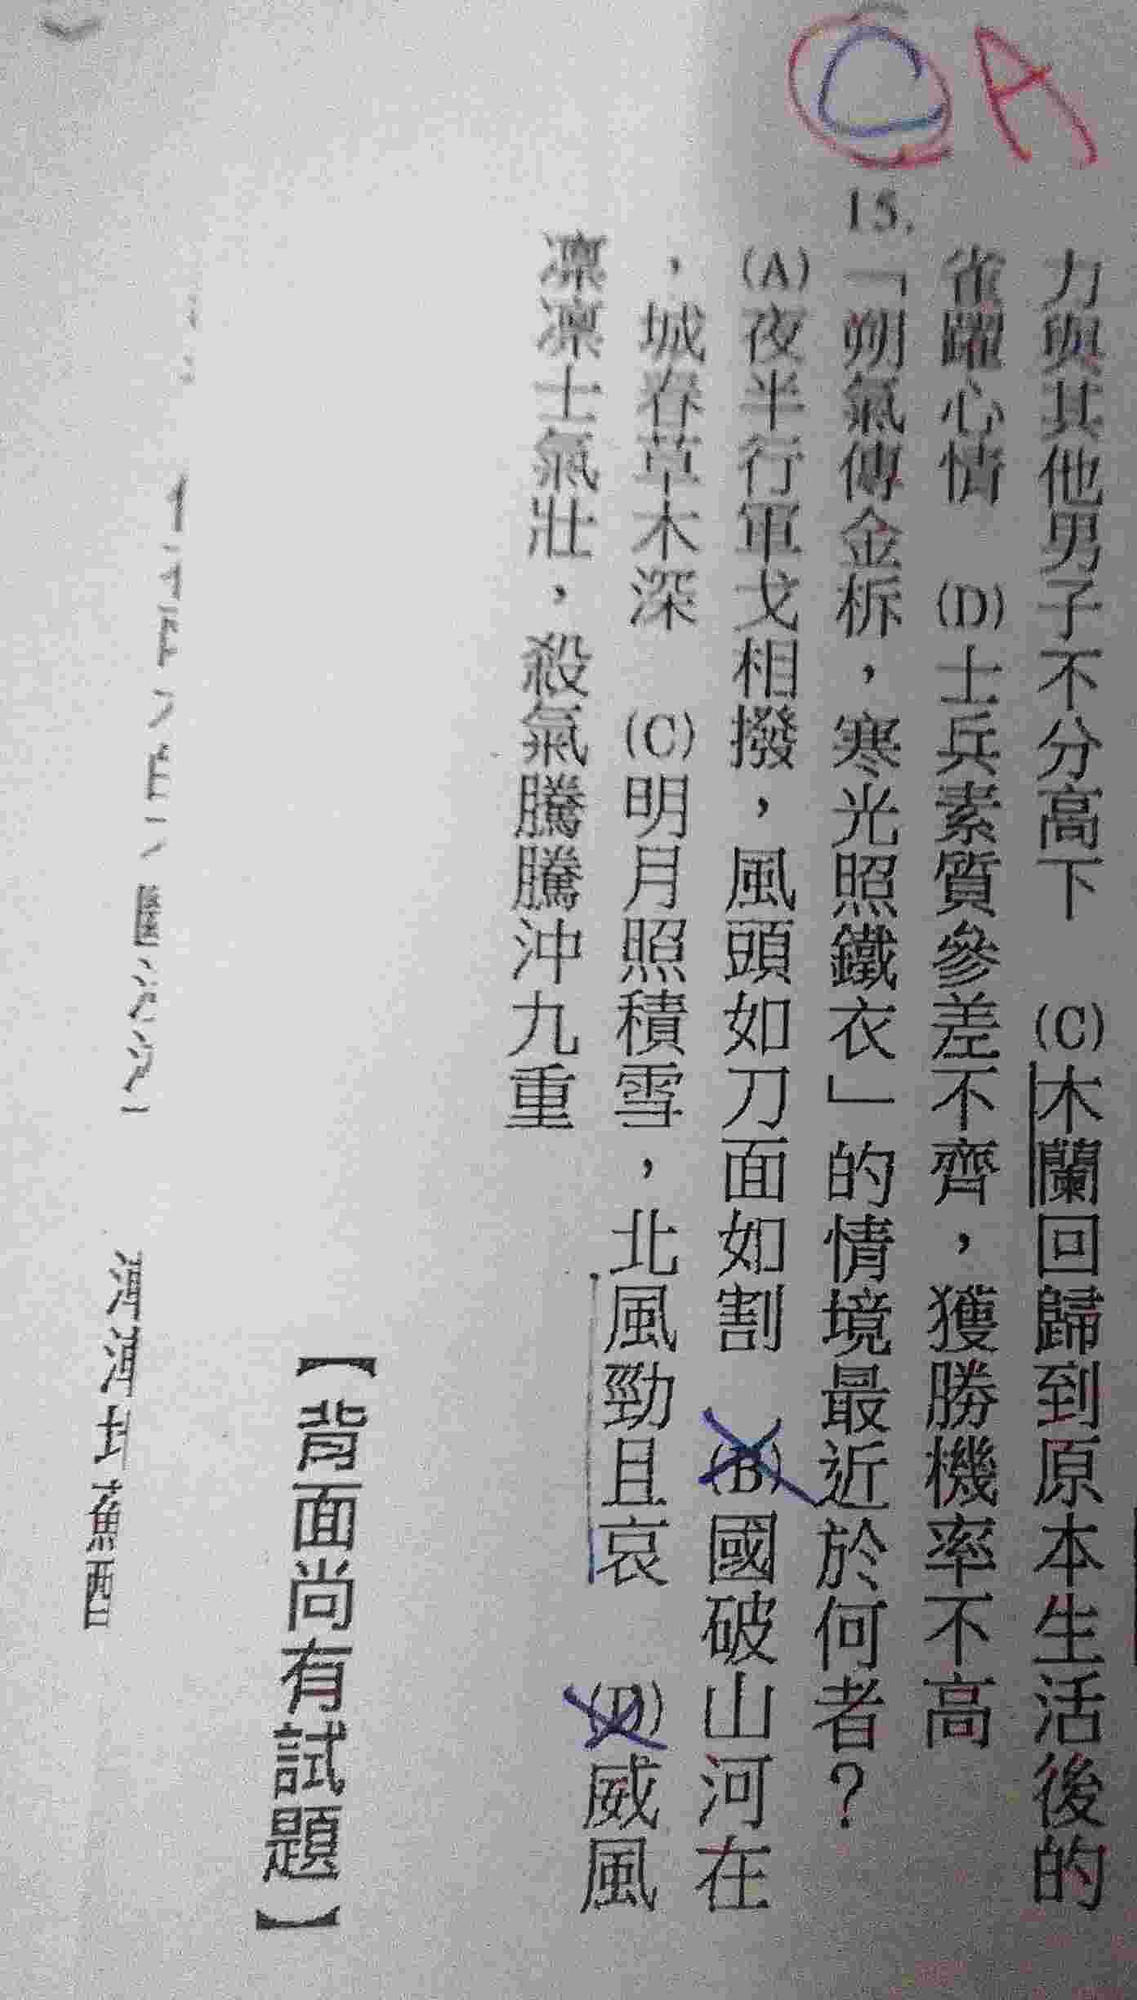 A
C
力與其他男子不分高下　(C)木蘭回歸到原本生活後的
雀躍心情　(D)士兵素質參差不齊，獲勝機率不高
15.「朔氣傳金柝，寒光照鐵衣」的情境最近於何者？
(A)夜半行軍戈相撥，風頭如刀面如割　(B)國破山河在
，城春草木深　(C)明月照積雪，北風勁且哀　(D)威風
凛凛士氣壯，殺氣騰騰沖九重
【背面尚有試題】